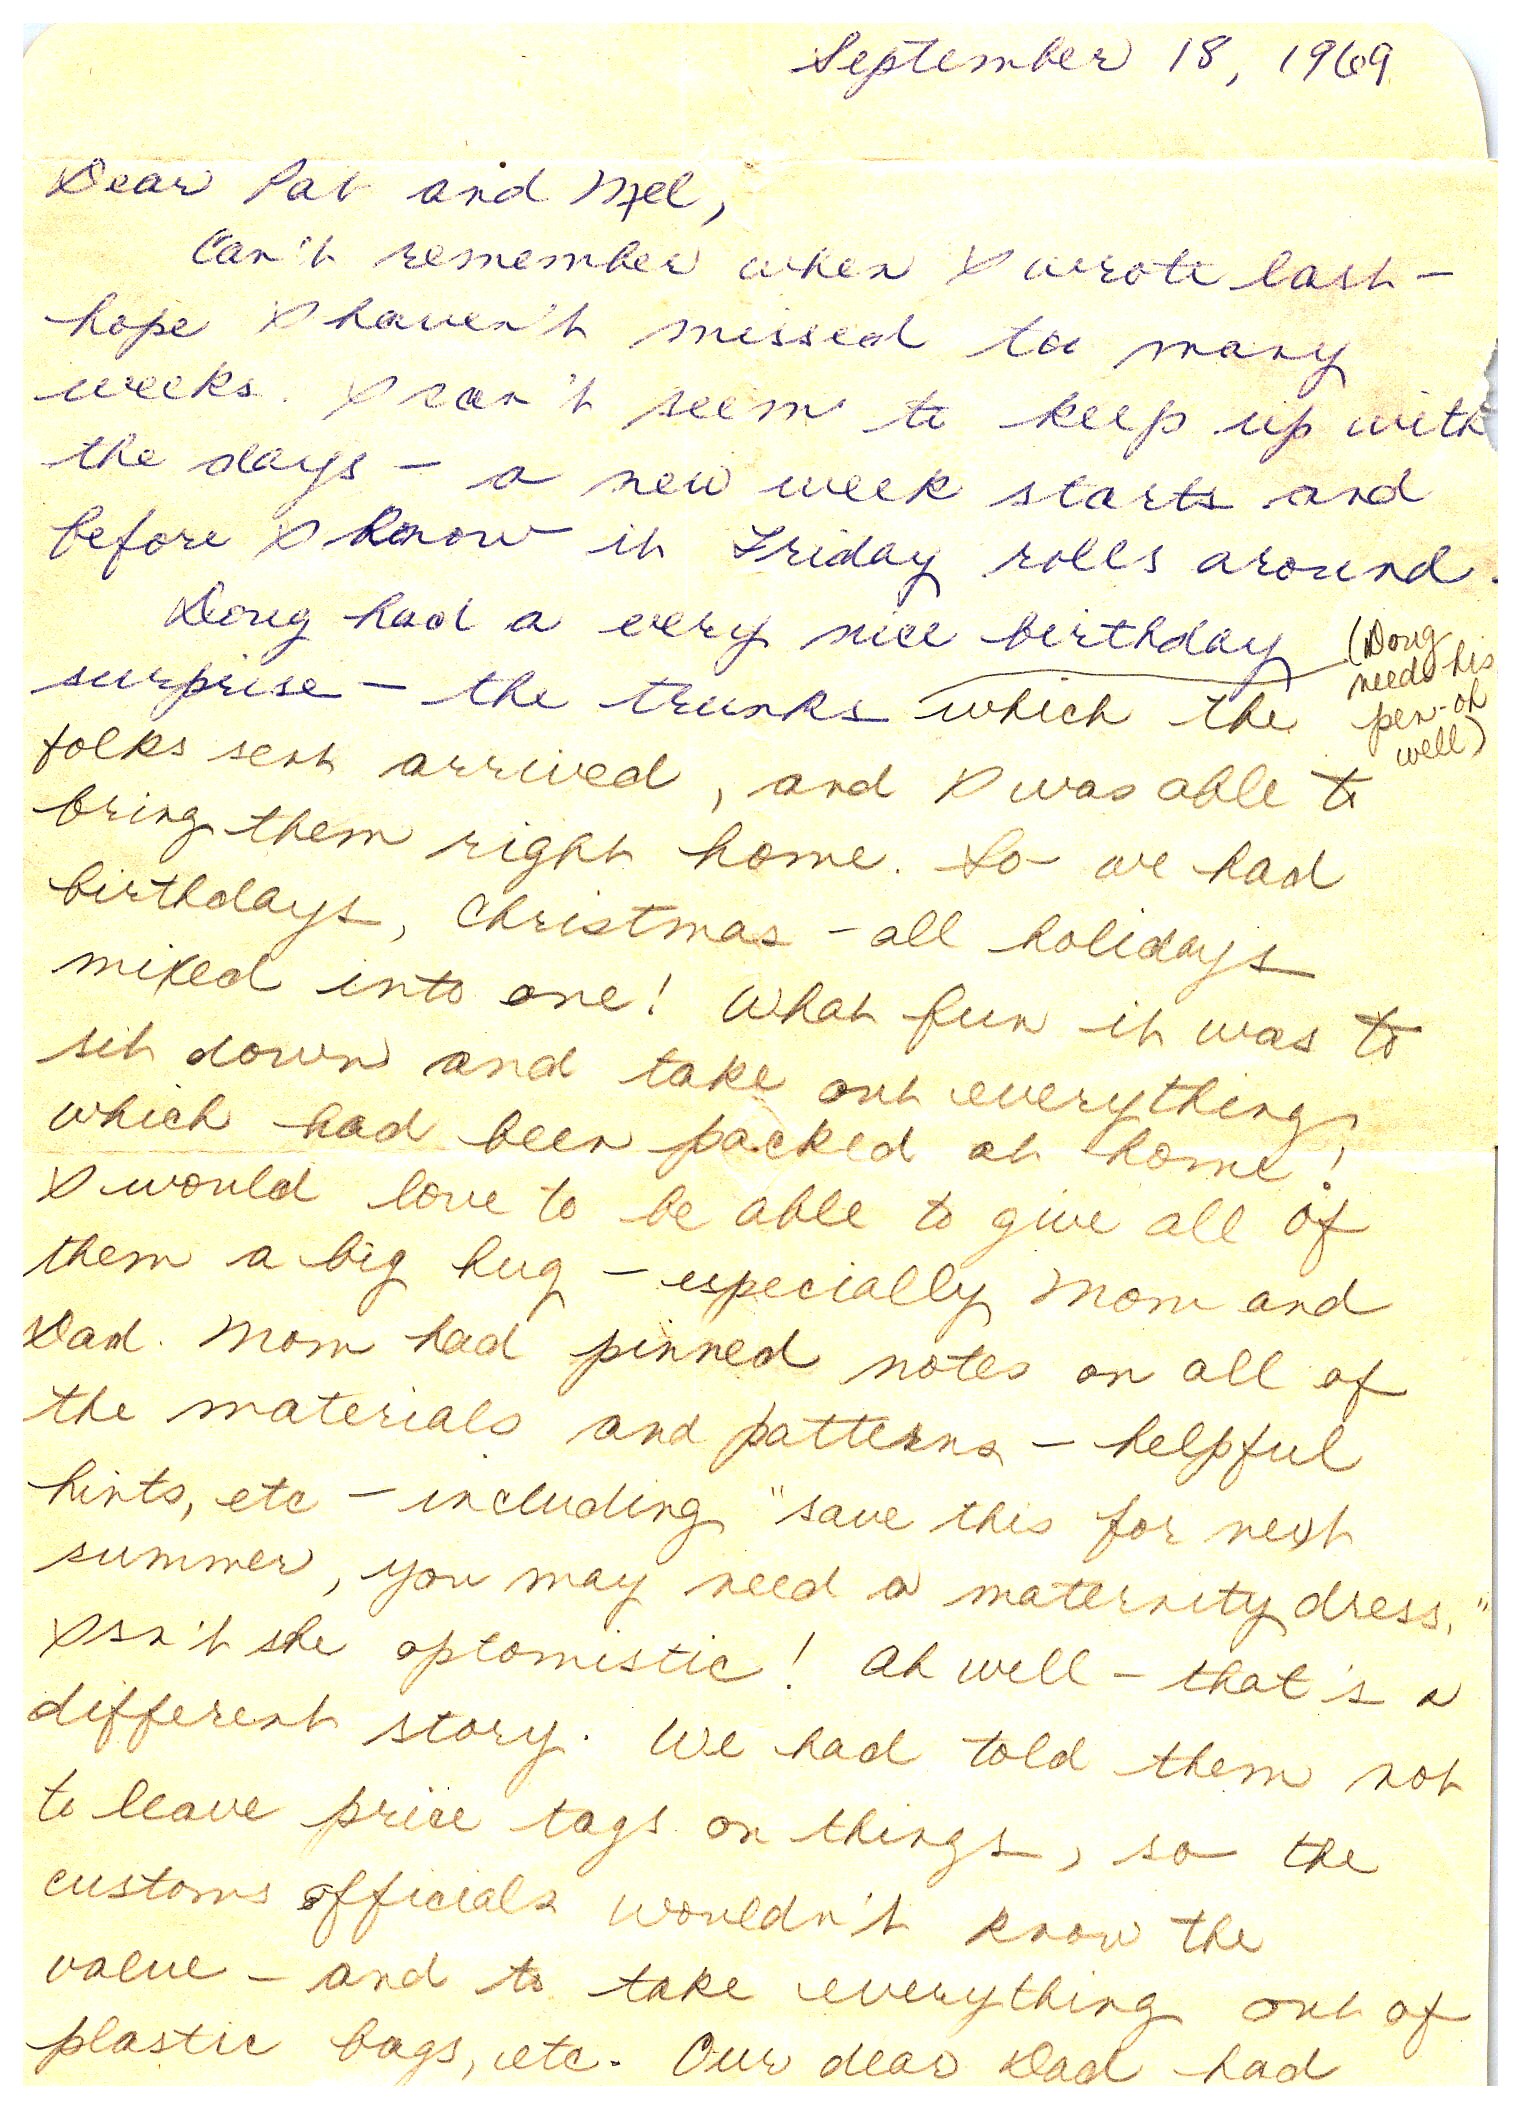 September 18, 1969
Dear Pat and Mel,
Can't remember when I wrote last -
hope I haven't missed too many
weeks. I can't seem to keep up with
the days - a new week starts and
before I know it Friday rolls around.
Doug had a very nice birthday
surprise - the trunks which the
(Doug
needs his
pen - oh
well)
folks sent arrived, and I was able to
bring them right home. So we had
birthdays, Christmas - all holidays
mixed into one! What fun it was to
sit down and take out everything
which had been packed at home!
I would love to be able to give all of
them a big hug - especially Mom and
Dad. Mom had pinned notes on all of
the materials and patterns - helpful
hints, etc - including "save this for next
summer, you may need a maternity dress."
Isn't she optomistic! Ah well - that's a
different story. We had told them not
to leave price tags on things, so the
customs officials wouldn't know the
value - and to take everything out of
plastic bags, etc. Our dear Dad had